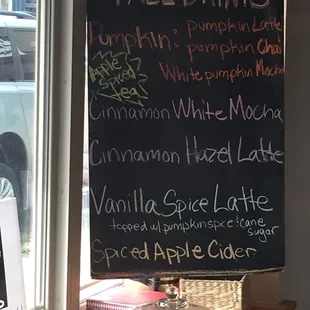 FALL DRINKS
Pumpkin: pumpkin Latte
pumpkin Chai
White pumpkin Mocha
Apple
Spiced
tea
Cinnamon White Mocha
Cinnamon Hazel Latte
Vanilla Spice Latte
topped w/ pumpkin spice & cane
sugar
Spiced Apple Cider